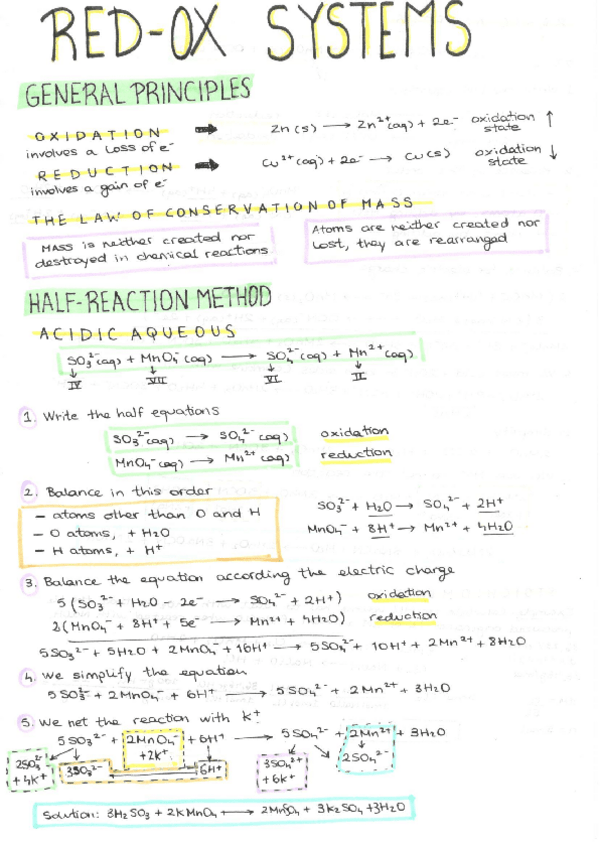 RED-OX SYSTEMS
GENERAL PRINCIPLES
OXIDATION ➡ Zn(s) → Zn²⁺(aq) + 2e⁻ oxidation state ↑
involves a loss of e⁻
REDUCTION ➡ Cu²⁺(aq) + 2e⁻ → Cu(s) oxidation state ↓
involves a gain of e⁻
THE LAW OF CONSERVATION OF MASS
MASS is neither created nor
destroyed in chemical reactions
Atoms are neither created nor
lost, they are rearranged
HALF-REACTION METHOD
ACIDIC AQUEOUS
SO₃²⁻(aq) + MnO₄⁻(aq) → SO₄²⁻(aq) + Mn²⁺(aq)
IV VII VI II
1. Write the half equations
SO₃²⁻(aq) → SO₄²⁻(aq) oxidation
MnO₄⁻(aq) → Mn²⁺(aq) reduction
2. Balance in this order
- atoms other than O and H
- O atoms, + H₂O
- H atoms, + H⁺
SO₃²⁻ + H₂O → SO₄²⁻ + 2H⁺
MnO₄⁻ + 8H⁺ → Mn²⁺ + 4H₂O
3. Balance the equation according the electric charge
5(SO₃²⁻ + H₂O - 2e⁻ → SO₄²⁻ + 2H⁺) oxidation
2(MnO₄⁻ + 8H⁺ + 5e⁻ → Mn²⁺ + 4H₂O) reduction
5SO₃²⁻ + 5H₂O + 2MnO₄⁻ + 16H⁺ → 5SO₄²⁻ + 10H⁺ + 2Mn²⁺ + 8H₂O
4. We simplify the equation
5SO₃²⁻ + 2MnO₄⁻ + 6H⁺ → 5SO₄²⁻ + 2Mn²⁺ + 3H₂O
5. We net the reaction with K⁺
5SO₃²⁻ + 2MnO₄⁻ + 6H⁺ → 5SO₄²⁻ + 2Mn²⁺ + 3H₂O
+2K⁺
2SO₃²⁻ + 4K⁺
3SO₃²⁻ 6H⁺
+ 6K⁺
2SO₄²⁻
Solution: 3H₂SO₃ + 2KMnO₄ → + 3K₂SO₄ + 3H₂O